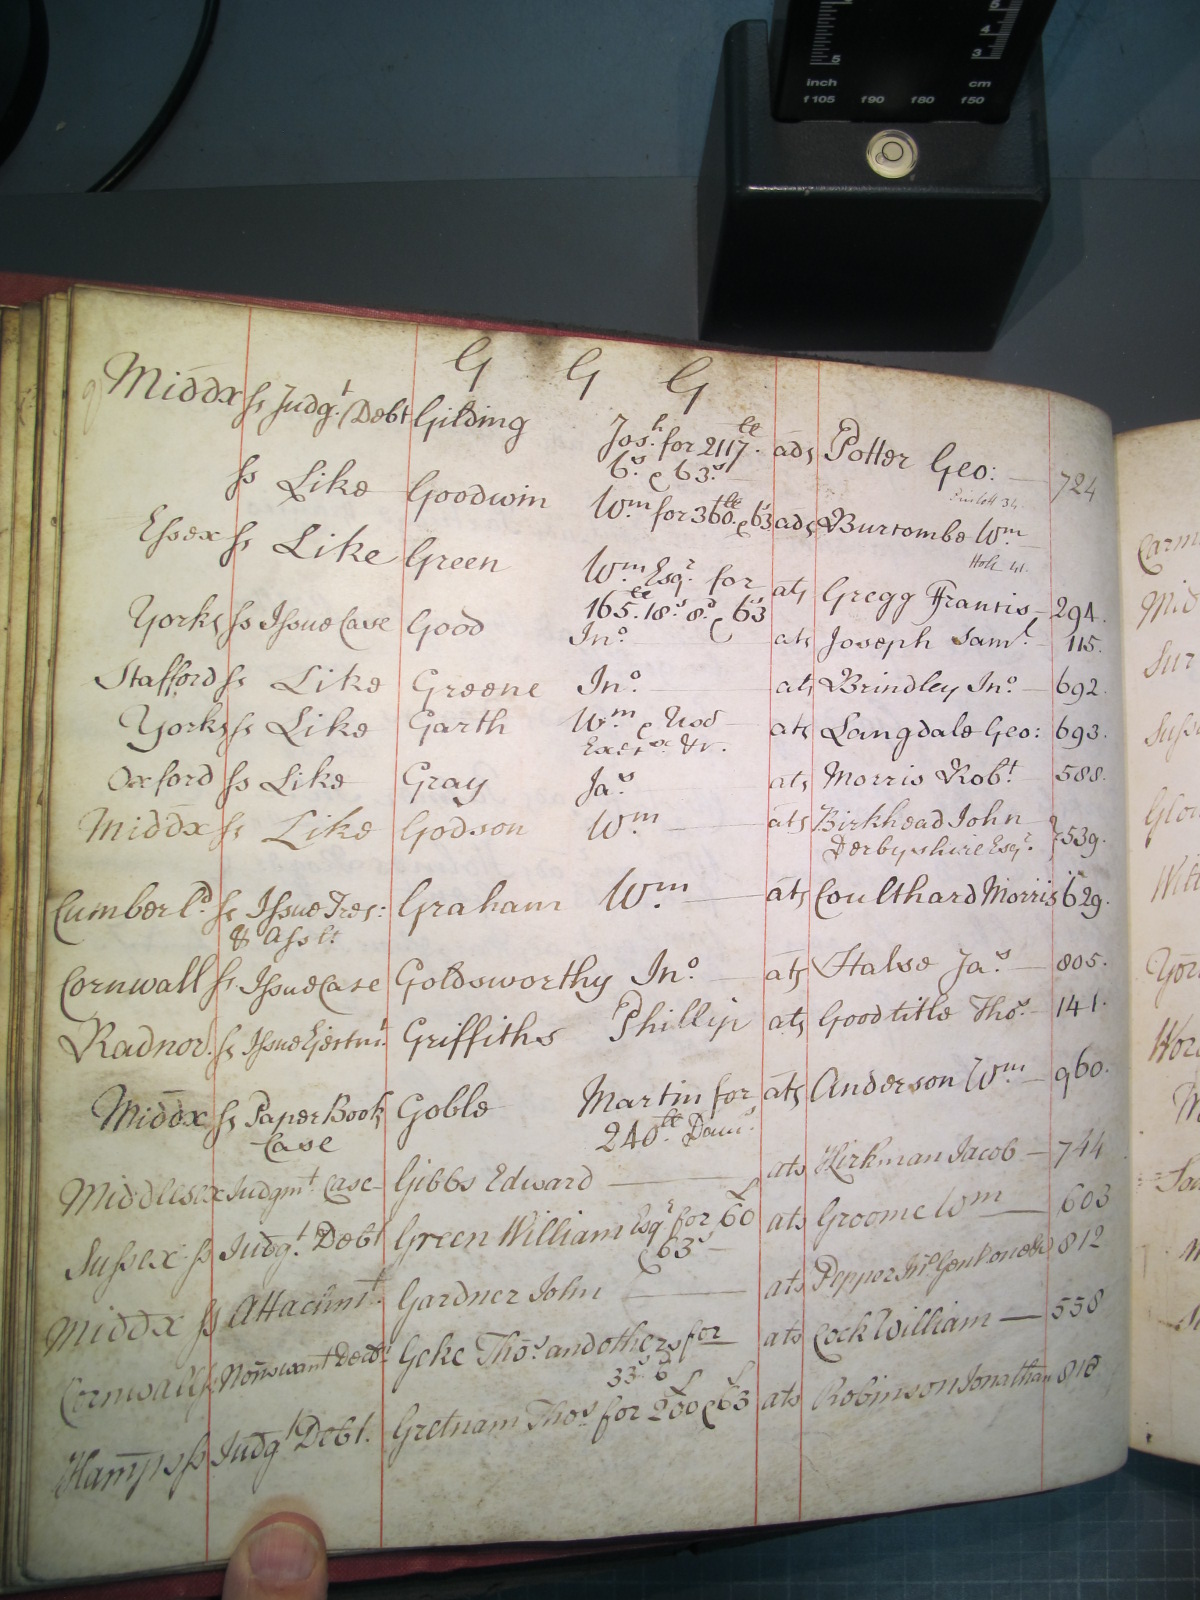 5 5 4 3
inch cm
f105 f90 f80 f50
G G G
Middx ss Judgt. Debt Gilding Josh. for 2117ll. ads Potter Geo: — 724
6s. & 63s.
ss Like Goodwin Wm. for 360ll. & 63 ads Burcombe Wm.
Essex ss Like Green Wm. Esqr. for ats Gregg Francis — 294.
165ll. 18s. 8d. & 63s
Yorks ss Issue Case Good Jno. ats Joseph Saml. — 115.
Stafford ss Like Greene Jno. ats Brindley Jno. — 692.
Yorks ss Like Garth Wm. & Uxd ats Langdale Geo: 693.
Exetx. &c.
Oxford ss Like Gray Jas. ats Morris Robt. — 588.
Middx ss Like Godson Wm. — ats Birkhead John
Derbyshire Esqr. } 539.
Cumberld. ss Issue Tres: Graham Wm. — ats Coulthard Morris 629.
& Asslt.
Cornwall ss Issue Case Goldsworthy Jno. — ats Halse Jas. — 805.
Radnor. ss Issue Ejectmt. Griffiths Phillip ats Goodtitle Thos. — 141.
Middx ss Paper Book Goble Martin for ats Anderson Wm. — 960.
Case 240ll. Dams.
Middlesex Judgmt. Case Gibbs Edward — ats Kirkman Jacob — 744
Sussex ss Judgt. Debt Green William Esqr. for £60 ats Groome Wm — 603
& 63s —
Middx ss Attachmt. Gardner John — ats Pepper Jno. Gent one &c 812
Cornwall ss Geke Thos. and others for ats Cock William — 558
33s. 6
Hamps ss Judgt Debt. Gretnam Thos. for £200 & 63s ats Robinson Jonathan 816